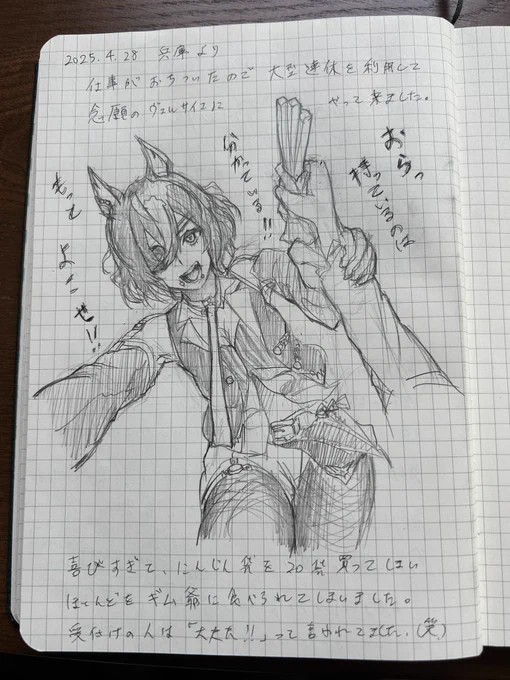 2025.4.28 兵庫より
仕事がおちついたので大型連休を利用して
念願のヴェルサイユに やって来ました。
おらっ
持っているのは
分かっている!!
もっと よこせ!!
喜びすぎて、にんじん袋を20袋買ってしまい
ほとんどをギム爺に食べられてしまいました。
受付けの人は「大丈夫!!」って言われてました。(笑)